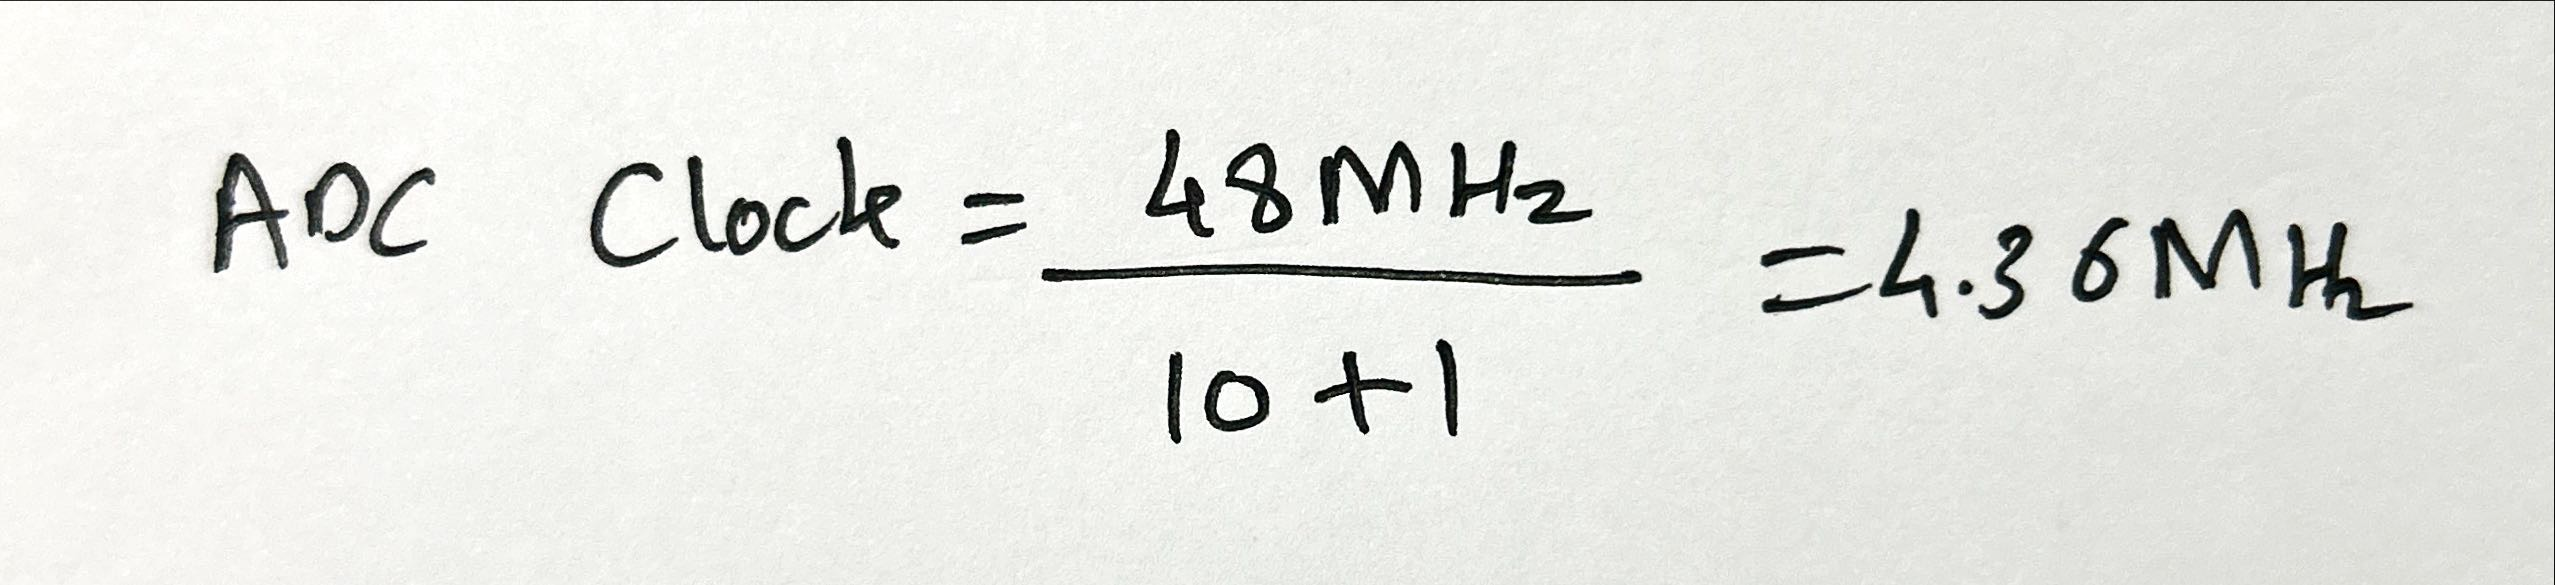 ADC Clock = 48MHz / 10+1 = 4.36MHz